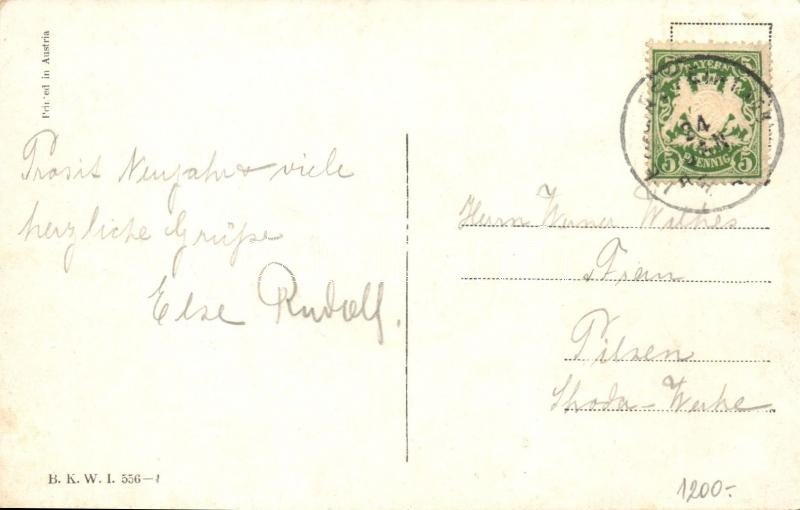 Printed in Austria
Prosit Neujahr & viele
herzliche Grüße
Else Rudolf.
BAYERN
5 5
PFENNIG
24
JAN
Herrn Werner
Pilsen
Skoda-Werke
B. K. W. I. 556-1
1200.-